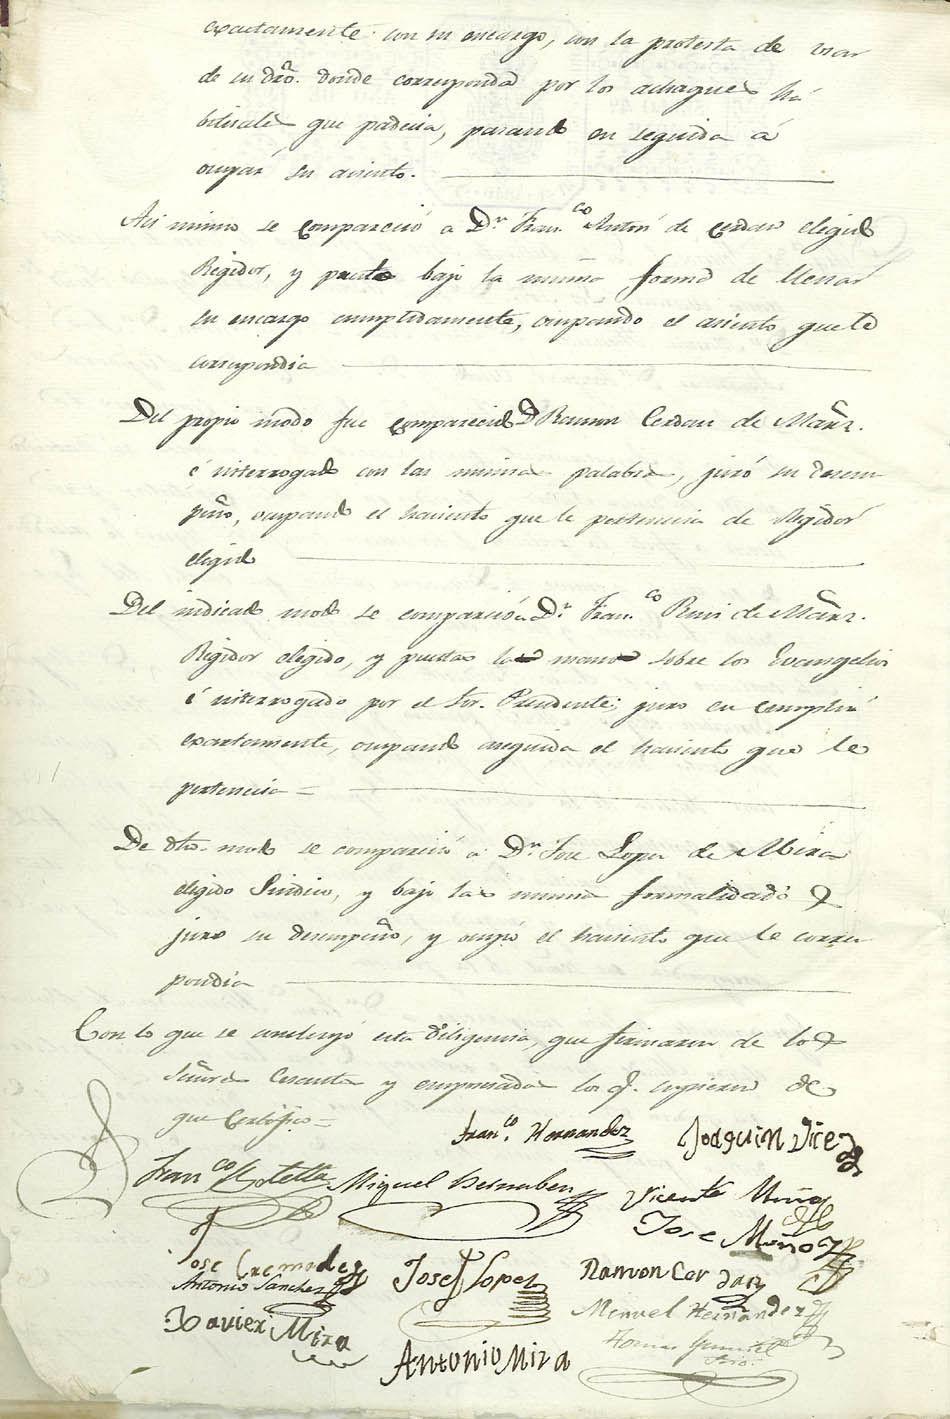 exactamente con su encargo, con la protesta de usar
de su dro. donde corresponda por los achaques há
bituales que padecia, pasando en seguida á
ocupar su asiento.
Asi mismo se compareció a Dn. Franco. Antón de Cerdan elegido
Regidor, y puesto bajo la misma forma de llenar
su encargo cumplidamente, ocupando el asiento que le
correspondia
Del propio modo fue comparecido D Ramon Cerdan de Mañz.
é interrogado con las mismas palabras, juró su desem
peño, ocupando el hasiento que le pertenecia de Regidor
elegido
Del indicado modo se compareció a Dn. Franco. de Mañz.
Regidor elegido, y puestas las manos sobre los Evangelios
é interrogado por el Sor. Presidente; juro en cumplir
exactamente, ocupando aseguida el hasiento que le
pertenecia =
De dho. modo se compareció a Dn. Jose Lopez de Mira
elegido Sindico, y bajo las mismas formalidades
juro su desempeño, y ocupó el hasiento que le corres
pondia
Con lo que se concluyó esta diligencia, que firmaron de los
Señores Cesantes y empesados los q. supieron de
que Certifico =
Franco. Hernandez Joaquin Vicedo
Franco. Miguel Bernabeu Vicente Muños
Jose Muños
Jose Cremades Jose Lopez Ramon Cerdan
Antonio Sanchez
Manuel Hernandez
Xavier Mira
Antonio Mira
Tomas
Srio.